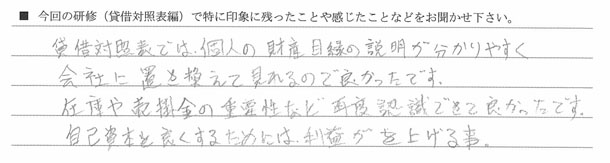 ■ 今回の研修（貸借対照表編）で特に印象に残ったことや感じたことなどをお聞かせ下さい。
貸借対照表では、個人の財産目録の説明が分かりやすく
会社に置き換えて見れるので良かったです。
在庫や売掛金の重要性など再度認識できて良かったです。
自己資本を良くするためには、利益がを上げる事。